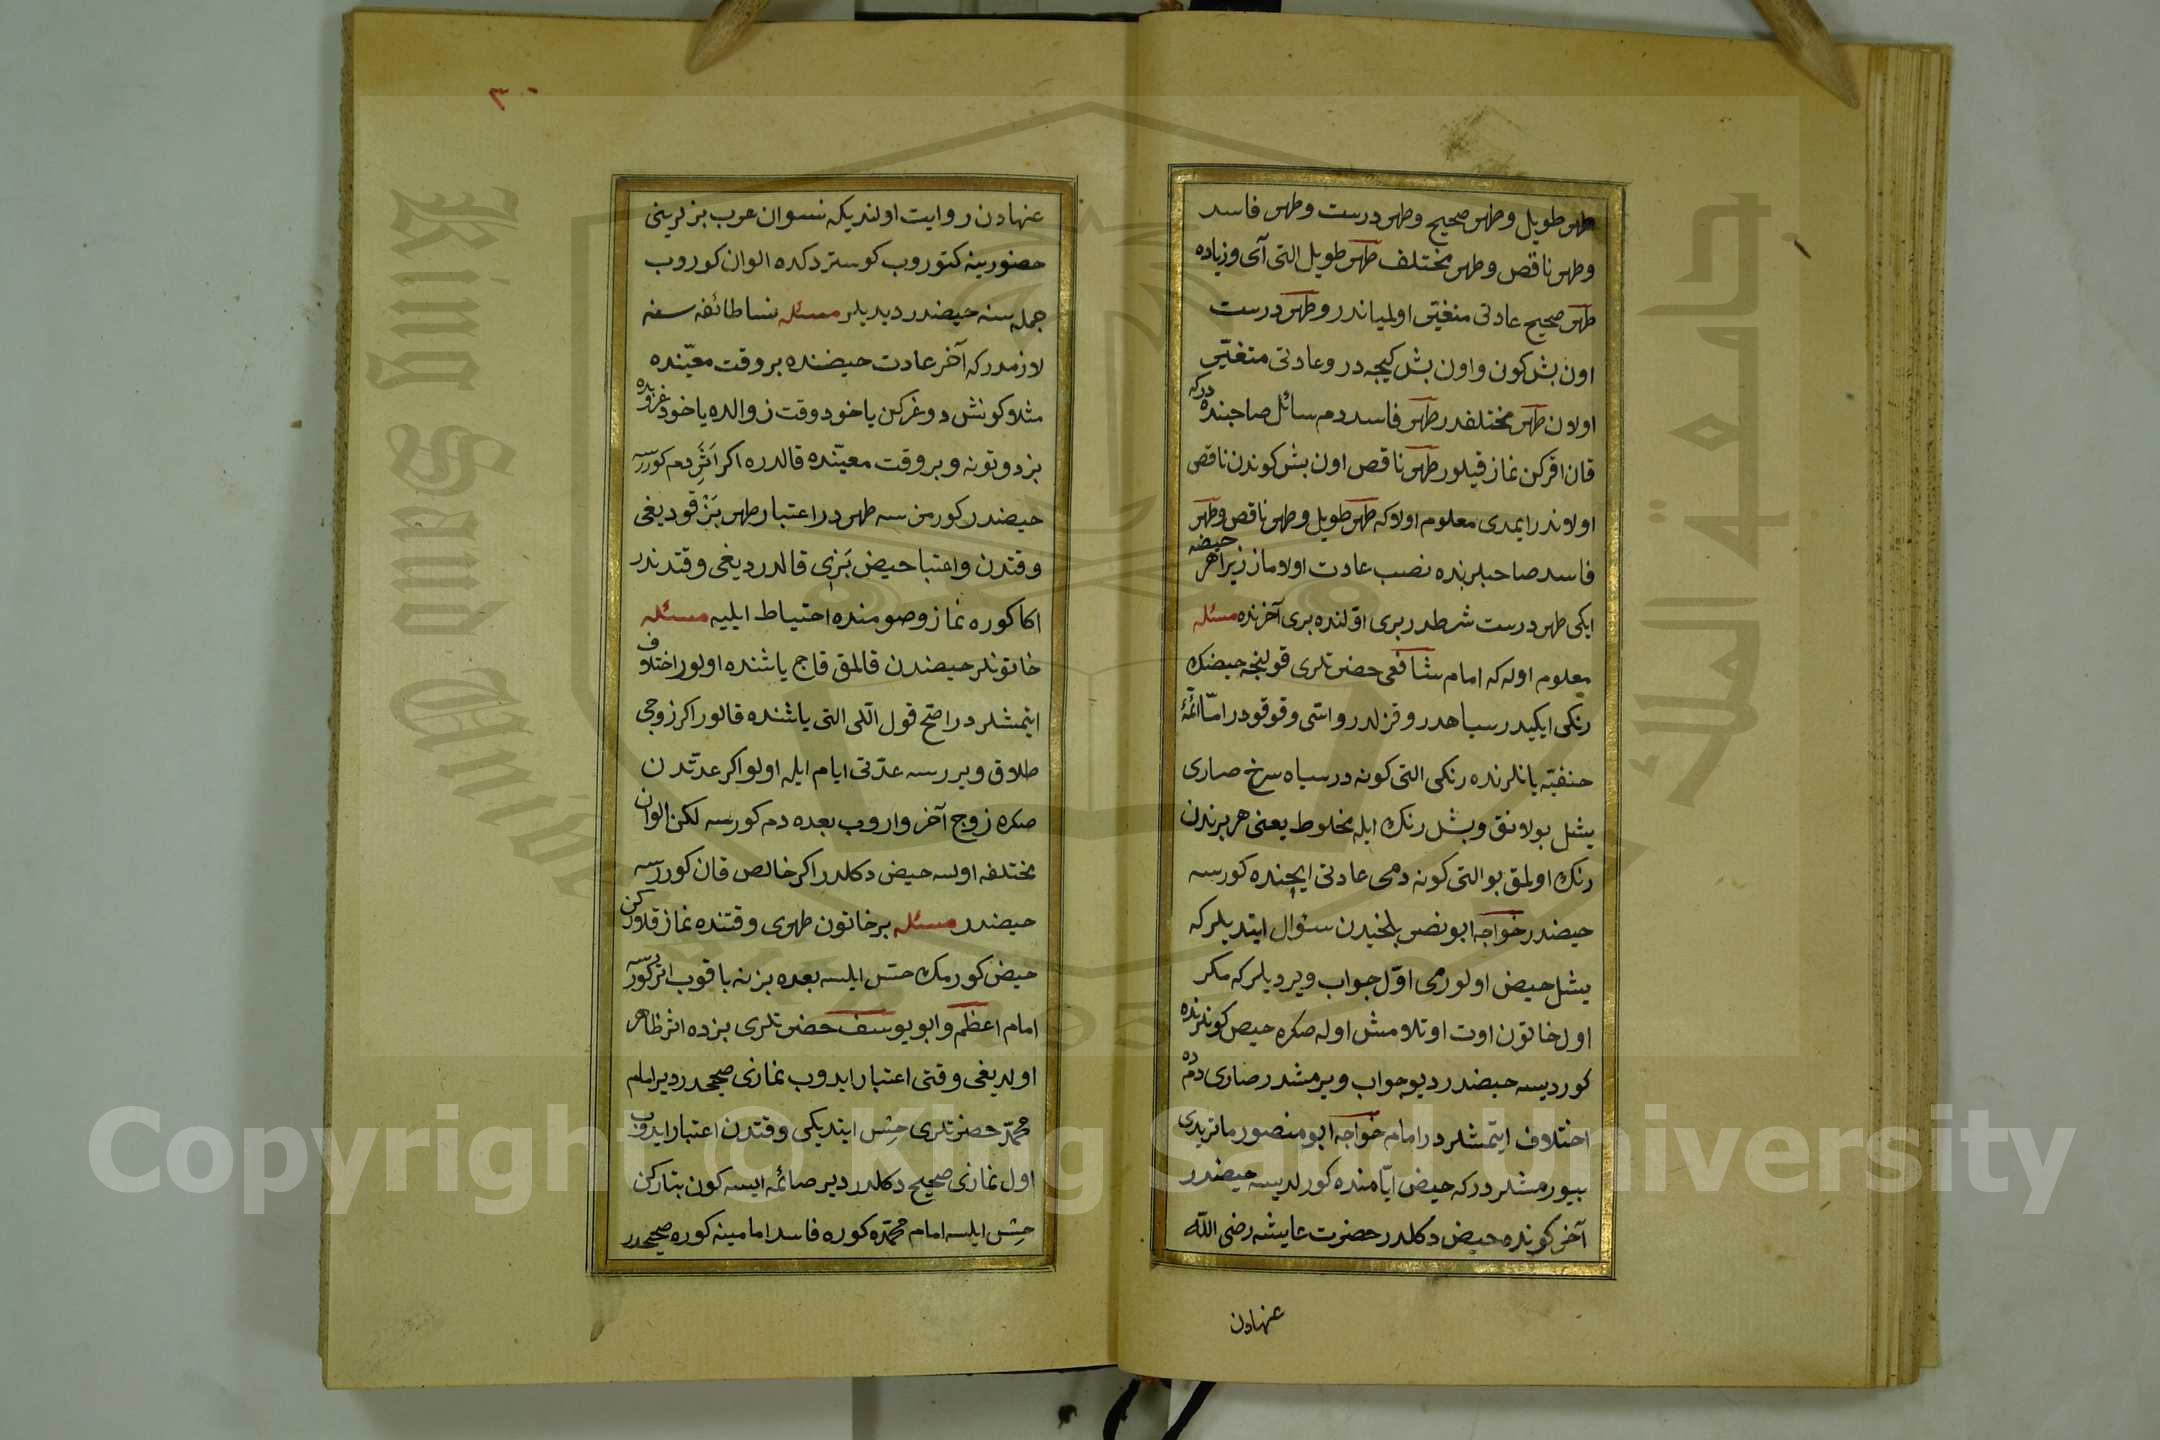 طهر طويل وطهر صحيح وطهر درست وطهر فاسد
وطهر ناقص وطهر مختلف طهر طويل التى آى وزياده
طهر صحيح عادتى متغيّر اولمياندر وطهر درست
اون بش كون واون بش كيجه در وعادتى متغيّر
اولان طهر مختلفدر طهر فاسد دم سائل صاحبنده در كه
قان اقركن نماز قيلور طهر ناقص اون بش كوندن ناقص
اولاندر ايمدى معلوم اولا كه طهر طويل وطهر ناقص وطهر
فاسد صاحبلرنده نصب عادت اولاماز زيرا هر حيضه
ايكى طهر درست شرطدر برى اوّلنده برى آخرنده مسئله
معلوم اوله كه امام شافعى حضرتلرى قولنجه حيضك
رنكى ايكيدر سياهدر وقزلدر واسّى وقوقودر امّا ائمّهٔ
حنفيّه يانلرنده رنكى التى كونه در سياه سرخ صارى
يشل بولانق وبشل رنك ايله مخلوط يعنى هر برندن
رنك اولمق بو التى كونه دمى عادتى ايچنده كورسه
حيضدر خواجه ابو نصر بلخيدن سؤال ايتديلر كه
يشل حيض اولورمى اوّل جواب ويرديلر كه مكر
اول خاتون اوت اوتلامش اوله صكره حيض كونلرنده
كورديسه حيضدر ديو جواب ويرمشدر صارى دمده
اختلاف ايتمشلردر امام خواجه ابو منصور ماتريدى
بيورمشلردر كه حيض ايّامنده كورلديسه حيضدر
آخر كونده حيض دكلدر حضرت عايشه رضى اللّه
عنهادن
٣٠
عنهادن روايت اولنديكه نسوان عرب بزلرينى
حضورينه كتوروب كوستردكده الوان كوروب
جمله سنه حيضدر ديديلر مسئله نسا طائفه سنه
لازمدر كه آخر عادت حيضنده بر وقت معيّنده
مثلا كونش دوغركن ياخود وقت زوالده ياخود غروبده
بز دوتونه وبر وقت معيّنده قالدره اكر اثر دم كوررسه
حيضدر كورمزسه طهردر اعتبار طهر بز قوديغى
وقتدن واعتبا حيض بزى قالدرديغى وقتدندر
اكا كوره نماز وصومنده احتياط ايليه مسئله
خاتونلر حيضدن قالمق قاج ياشنده اولور اختلاف
ايتمشلردر اصحّ قول اللى التى ياشنده قالور اكر زوجى
طلاق ويررسه عدّتى ايام ايله اولو اكر عدّتدن
صكره زوج آخر واروب بعده دم كورسه لكن الوان
مختلفه اولسه حيض دكلدر اكر خالص قان كوررسه
حيضدر مسئله بر خاتون طهرى وقتنده نماز قلاركن
حيض كورمك حسّ ايلسه بعده بزنه باقوب اثر كوررسه
امام اعظم وابو يوسف حضرتلرى بزده اثر ظاهر
اولديغى وقتى اعتبار ايدوب نمازى صحيحدر دير امام
محمّد حضرتلرى حسّ ايتديكى وقتدن اعتبار ايدوب
اول نمازى صحيح دكلدر دير صائمه ايسه كون بتاركن
حسّ ايلسه امام محمّده كوره فاسد امامينه كوره صحيحدر
Copyright © King Saud University